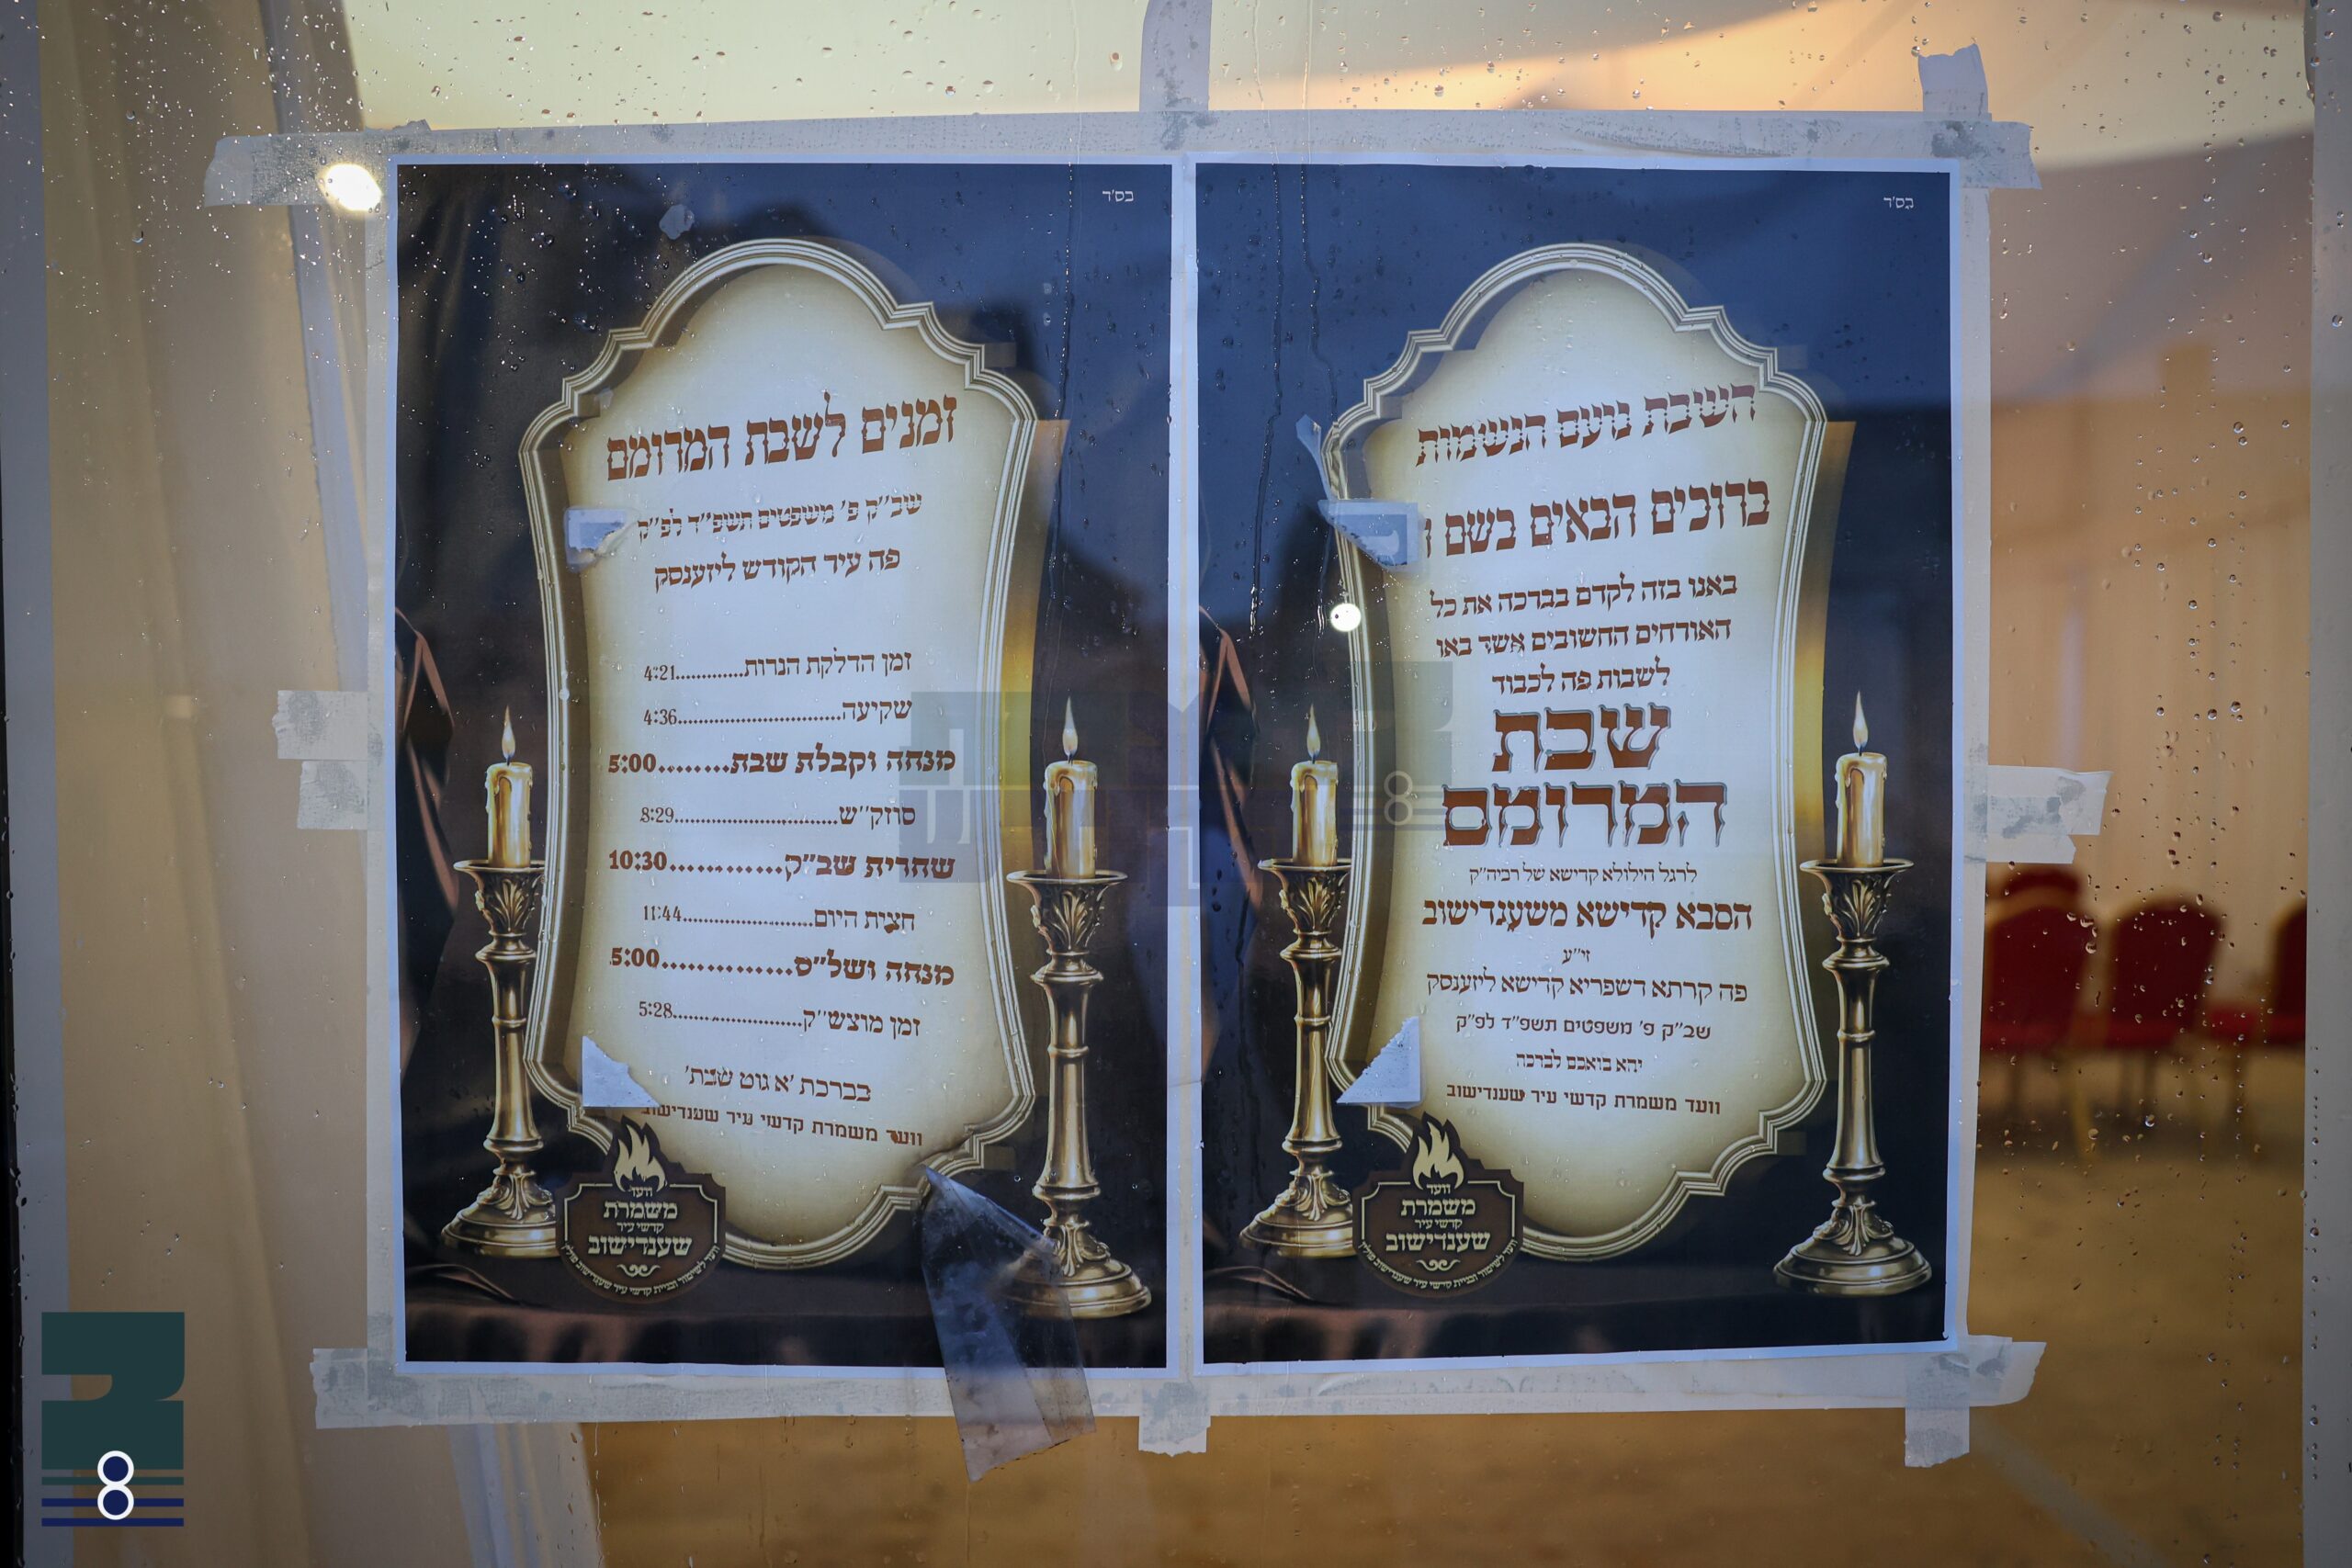 בס'ד
חשיבת נועם הנשמות
ברוכים הבאים בשם ה
באנו בזה לקדם בברכה את כל
האורחים החשובים אשר באו
לשבות פה לכבוד
שבת
המרומם
לרגל הילולא קדישא של רביה"ק
הסבא קדישא משענדישוב
זי"ע
פה קרתא דשפריא קדישא ליזענסק
שב"ק פ' משפטים תשפ"ד לפ"ק
יהא בואכם לברכה
וועד משמרת קדשי עיר שענדישוב
וועד
משמרת
קדשי עיר
שענדישוב
וועד לשימור ובניית קדשי עיר שענדישוב פולין
בס'ד
זמנים לשבת המרומם
שב"ק פ' משפטים תשפ"ד לפ"ק
פה עיר הקודש ליזענסק
זמן הדלקת הנרות.............4:21
שקיעה...............................4:36
מנחה וקבלת שבת.........5:00
סוזק"ש..............................8:29
שחרית שב"ק..............10:30
חצית היום.........................11:44
מנחה ושל"ס...............5:00
זמן מוצש"ק.........................5:28
בברכת 'א גוט שבת'
וועד משמרת קדשי עיר שענדישוב
וועד
משמרת
קדשי עיר
שענדישוב
וועד לשימור ובניית קדשי עיר שענדישוב פולין
8